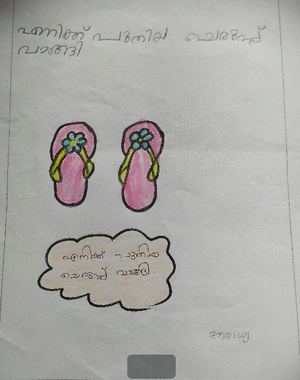 എനിക്ക് പുതിയ ചെരുപ്പ്
വാങ്ങി
എനിക്ക് പുതിയ
ചെരുപ്പ് വാങ്ങി.
ആരാധ്യ